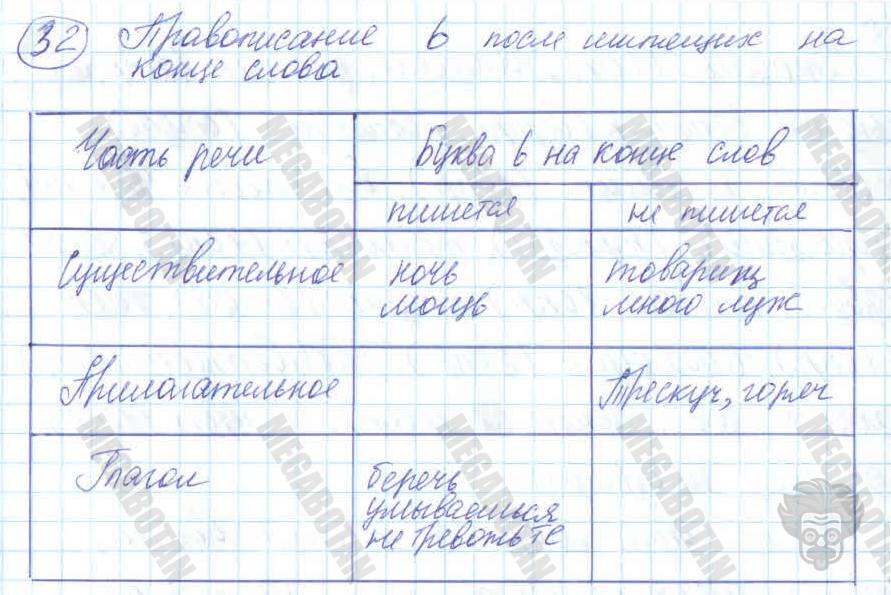 32 Правописание ь после шипящих на
конце слова
Часть речи Буква ь на конце слов
пишется не пишется
Существительное ночь товарищ
мощь много луж
Прилагательное Трескуч, горяч
Глагол беречь
умываешься
не тревожьте
MEGABOTAN